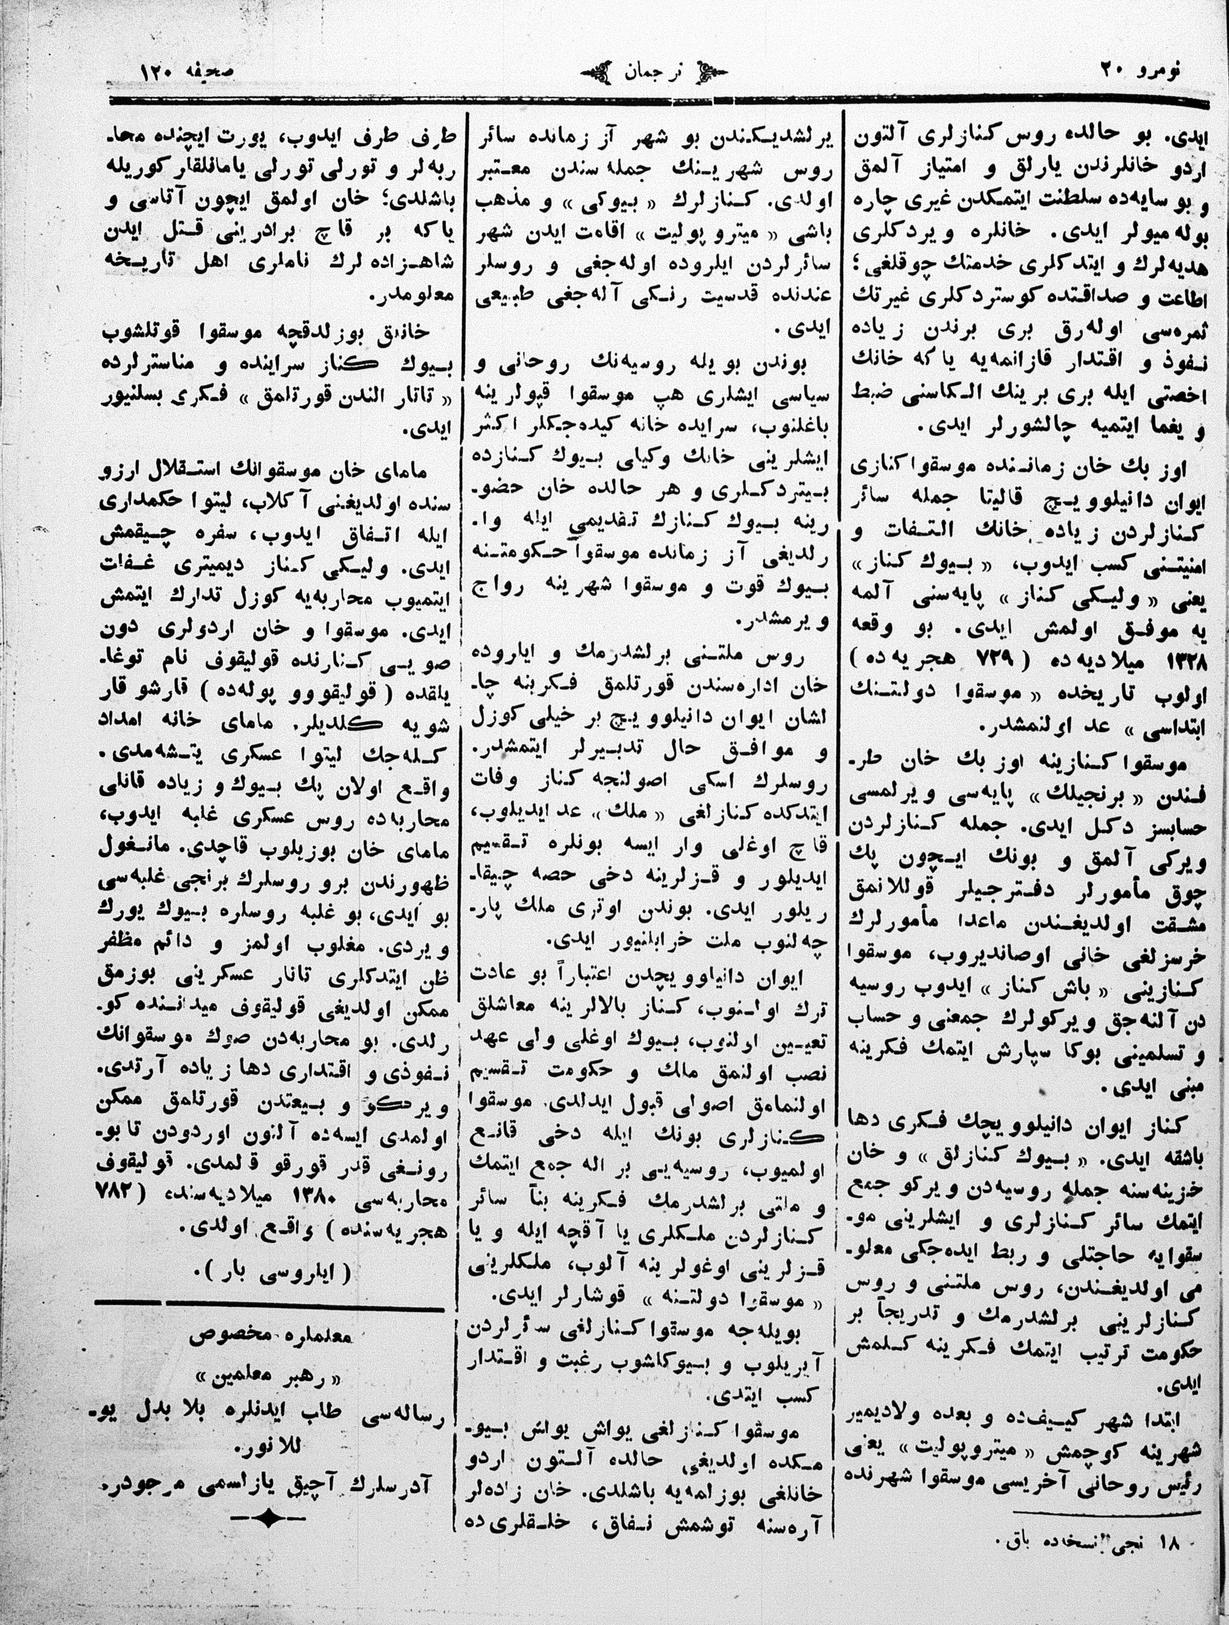 نومرو ٢٠
ترجمان
صحیفه ١٢٠
ایدی. بو حالده روس کنازلری آلتون
اردو خانلرندن یارلق و امتیاز آلمق
و بو سایه‌ده سلطنت ایتمکدن غیری چاره
بوله میولر ایدی. خانلره ویردکلری
هدیه‌لرك و ایتدکلری خدمتك چوقلغی؛
اطاعت و صداقتده کوستردکلری غیرتك
ثمره‌سی اوله‌رق بری برندن زیاده
نفوذ و اقتدار قازانمه‌یه یا که خانك
اخصتی ایله بری برینك الکاسنی ضبط
و یغما ایتمیه چالشورلر ایدی.
اوز بك خان زماننده موسقوا کنازی
ایوان دانیلوویچ قالیتا جمله سائر
کنازلردن زیاده خانك التفات و
امنیتنی کسب ایدوب، « بیوك کناز »
یعنی « ولیکی کناز » پایه‌سنی آلمه
یه موفق اولمش ایدی. بو وقعه
١٣٢٨ میلادیه‌ده ( ٧٢٩ هجریه‌ده )
اولوب تاریخده « موسقوا دولتنك
ابتداسی » عد اولنمشدر.
موسقوا کنازینه اوز بك خان طر-
فندن « برنجیلك » پایه‌سی ویرلمسی
حسابسز دکل ایدی. جمله کنازلردن
ویرکی آلمق و بونك ایچون پك
چوق مأمورلر دفترجیلر قوللانمق
مشقت اولدیغندن ماعدا مأمورلرك
خرسزلغی خانی اوصاندیروب، موسقوا
کنازینی « باش کناز » ایدوب روسیه
دن آلنه‌جق ویرکولرك جمعنی و حساب
و تسلمینی بوکا سپارش ایتمك فکرینه
مبنی ایدی.
کناز ایوان دانیلوویچك فکری دها
باشقه ایدی. « بیوك کنازلق » و خان
خزینه‌سنه جمله روسیه‌دن ویرکو جمع
ایتمك سائر کنازلری و ایشلرینی مو-
سقوایه حاجتلی و ربط ایده‌جکی معلو-
می اولدیغندن، روس ملتنی و روس
کنازلرینی برلشدرمك و تدریجاً بر
حکومت ترتیب ایتمك فکرینه کلمش
ایدی.
ابتدا شهر کییف‌ده و بعده ولادیمیر
شهرینه کوچمش « میتروپولیت » یعنی
رئیس روحانی آخریسی موسقوا شهرنده
١٨ نجی نسخه‌ده باق.
یرلشدیکندن بو شهر آز زمانده سائر
روس شهرینك جمله سندن معتبر
اولدی. کنازلرك « بیوکی » و مذهب
باشی « میتروپولیت » اقامت ایدن شهر
سائرلردن ایلروده اوله‌جغی و روسلر
عندنده قدسیت رنکی آله‌جغی طبیعی
ایدی.
بوندن بویله روسیه‌نك روحانی و
سیاسی ایشلری هپ موسقوا قپولرینه
باغلنوب، سرایده خانه کیده‌جکلر اکثر
ایشلرینی خانك وکیلی بیوك کنازده
بیتردکلری و هر حالده خان حضو-
رینه بیوك کنازك تقدیمی ایله وا-
رلدیغی آز زمانده موسقوا حکومتنه
بیوك قوت و موسقوا شهرینه رواج
ویرمشدر.
روس ملتنی برلشدرمك و ایلروده
خان اداره‌سندن قورتلمق فکرینه چا-
لشان ایوان دانیلوویچ بر خیلی کوزل
و موافق حال تدبیرلر ایتمشدر.
روسلرك اسکی اصولنجه کناز وفات
ایتدکده کنازلغی « ملك » عد ایدیلوب،
قاچ اوغلی وار ایسه بونلره تقسیم
ایدیلور و قزلرینه دخی حصه چیقا-
ریلور ایدی. بوندن اوتری ملك پار-
چه‌لنوب ملت خرابلنیور ایدی.
ایوان دانیلوویچدن اعتباراً بو عادت
ترك اولنوب، کناز بالالرینه معاشلق
تعیین اولنوب، بیوك اوغلی ولی عهد
نصب اولنمق ملك و حکومت تقسیم
اولنمامق اصولی قبول ایدلدی. موسقوا
کنازلری بونك ایله دخی قانع
اولمیوب، روسیه‌یی بر اله جمع ایتمك
و ملتی برلشدرمك فکرینه بنآ سائر
کنازلردن ملکلری یا آقچه ایله و یا
قزلرینی اوغولرینه آلوب، ملکلرینی
« موسقوا دولتنه » قوشارلر ایدی.
بویله‌جه موسقوا کنازلغی سائرلردن
آیریلوب و بیوکلشوب رغبت و اقتدار
کسب ایتدی.
موسقوا کنازلغی یواش یواش بیو-
مکده اولدیغی حالده آلتون اردو
خانلغی بوزلمه‌یه باشلدی. خان زاده‌لر
آره‌سنه توشمش نفاق، خلقلری‌ده
طرف طرف ایدوب، یورت ایچنده محا-
ربه‌لر و تورلی تورلی یامانلقلر کوریله
باشلدی؛ خان اولمق ایچون آتاسی و
یا که بر قاچ برادرینی قتل ایدن
شاهزاده‌لرك ناملری اهل تاریخه
معلومدر.
خانلق بوزلدقچه موسقوا قوتلشوب
بیوك کناز سراینده و مناسترلرده
« تاتار الندن قورتلمق » فکری بسلنیور
ایدی.
مامای خان موسقوانك استقلال ارزو
سنده اولدیغنی آکلاب، لیتوا حکمداری
ایله اتفاق ایدوب، سفره چیقمش
ایدی. ولیکی کناز دیمیتری غفلت
ایتمیوب محاربه‌یه کوزل تدارك ایتمش
ایدی. موسقوا و خان اردولری دون
صویی کنارنده قولیقوف نام توغا-
یلقده ( قولیقوو پوله‌ده ) قارشو قار
شویه کلدیلر. مامای خانه امداد
کله‌جك لیتوا عسکری یتشه‌مدی.
واقع اولان پك بیوك و زیاده قانلی
محاربه‌ده روس عسکری غلبه ایدوب،
مامای خان بوزیلوب قاچدی. مانغول
ظهورندن برو روسلرك برنجی غلبه‌سی
بو ایدی، بو غلبه روسلره بیوك یورك
ویردی. مغلوب اولمز و دائم مظفر
ظن ایتدکلری تاتار عسکرینی بوزمق
ممکن اولدیغی قولیقوف میداننده کو-
رلدی. بو محاربه‌دن صوك موسقوانك
نفوذی و اقتداری دها زیاده آرتدی.
ویرکو و بیعتدن قورتلمق ممکن
اولمدی ایسه‌ده آلتون اوردودن تابو-
رونغی قدر قورقو قلمدی. قولیقوف
محاربه‌سی ١٣٨٠ میلادیه‌سنده، ( ٧٨٢
هجریه‌سنده ) واقع اولدی.
( ایلروسی بار ).
معلملره مخصوص
« رهبر معلمین »
رساله‌سی طلب ایدنلره بلا بدل یو-
للانور.
آدرسلرك آچیق یازلسمی مرجودر.